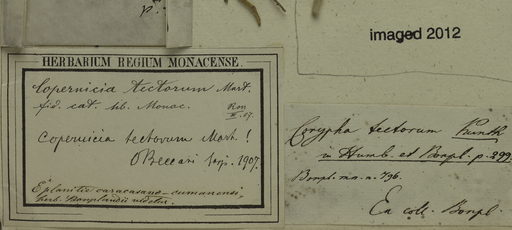 p.
imaged 2012
HERBARIUM REGIUM MONACENSE.
Copernicia tectorum Mart.
fid. cat. hb. Monac.
Copernicia tectorum Mart. !
O Beccari 1907.
E planitie caracasano-cumanensi,
herb. Bonplandii
Corypha tectorum Kunth
in Humb. et Bonpl. p. 299.
Bonpl. 796.
Ex coll. Bonpl.